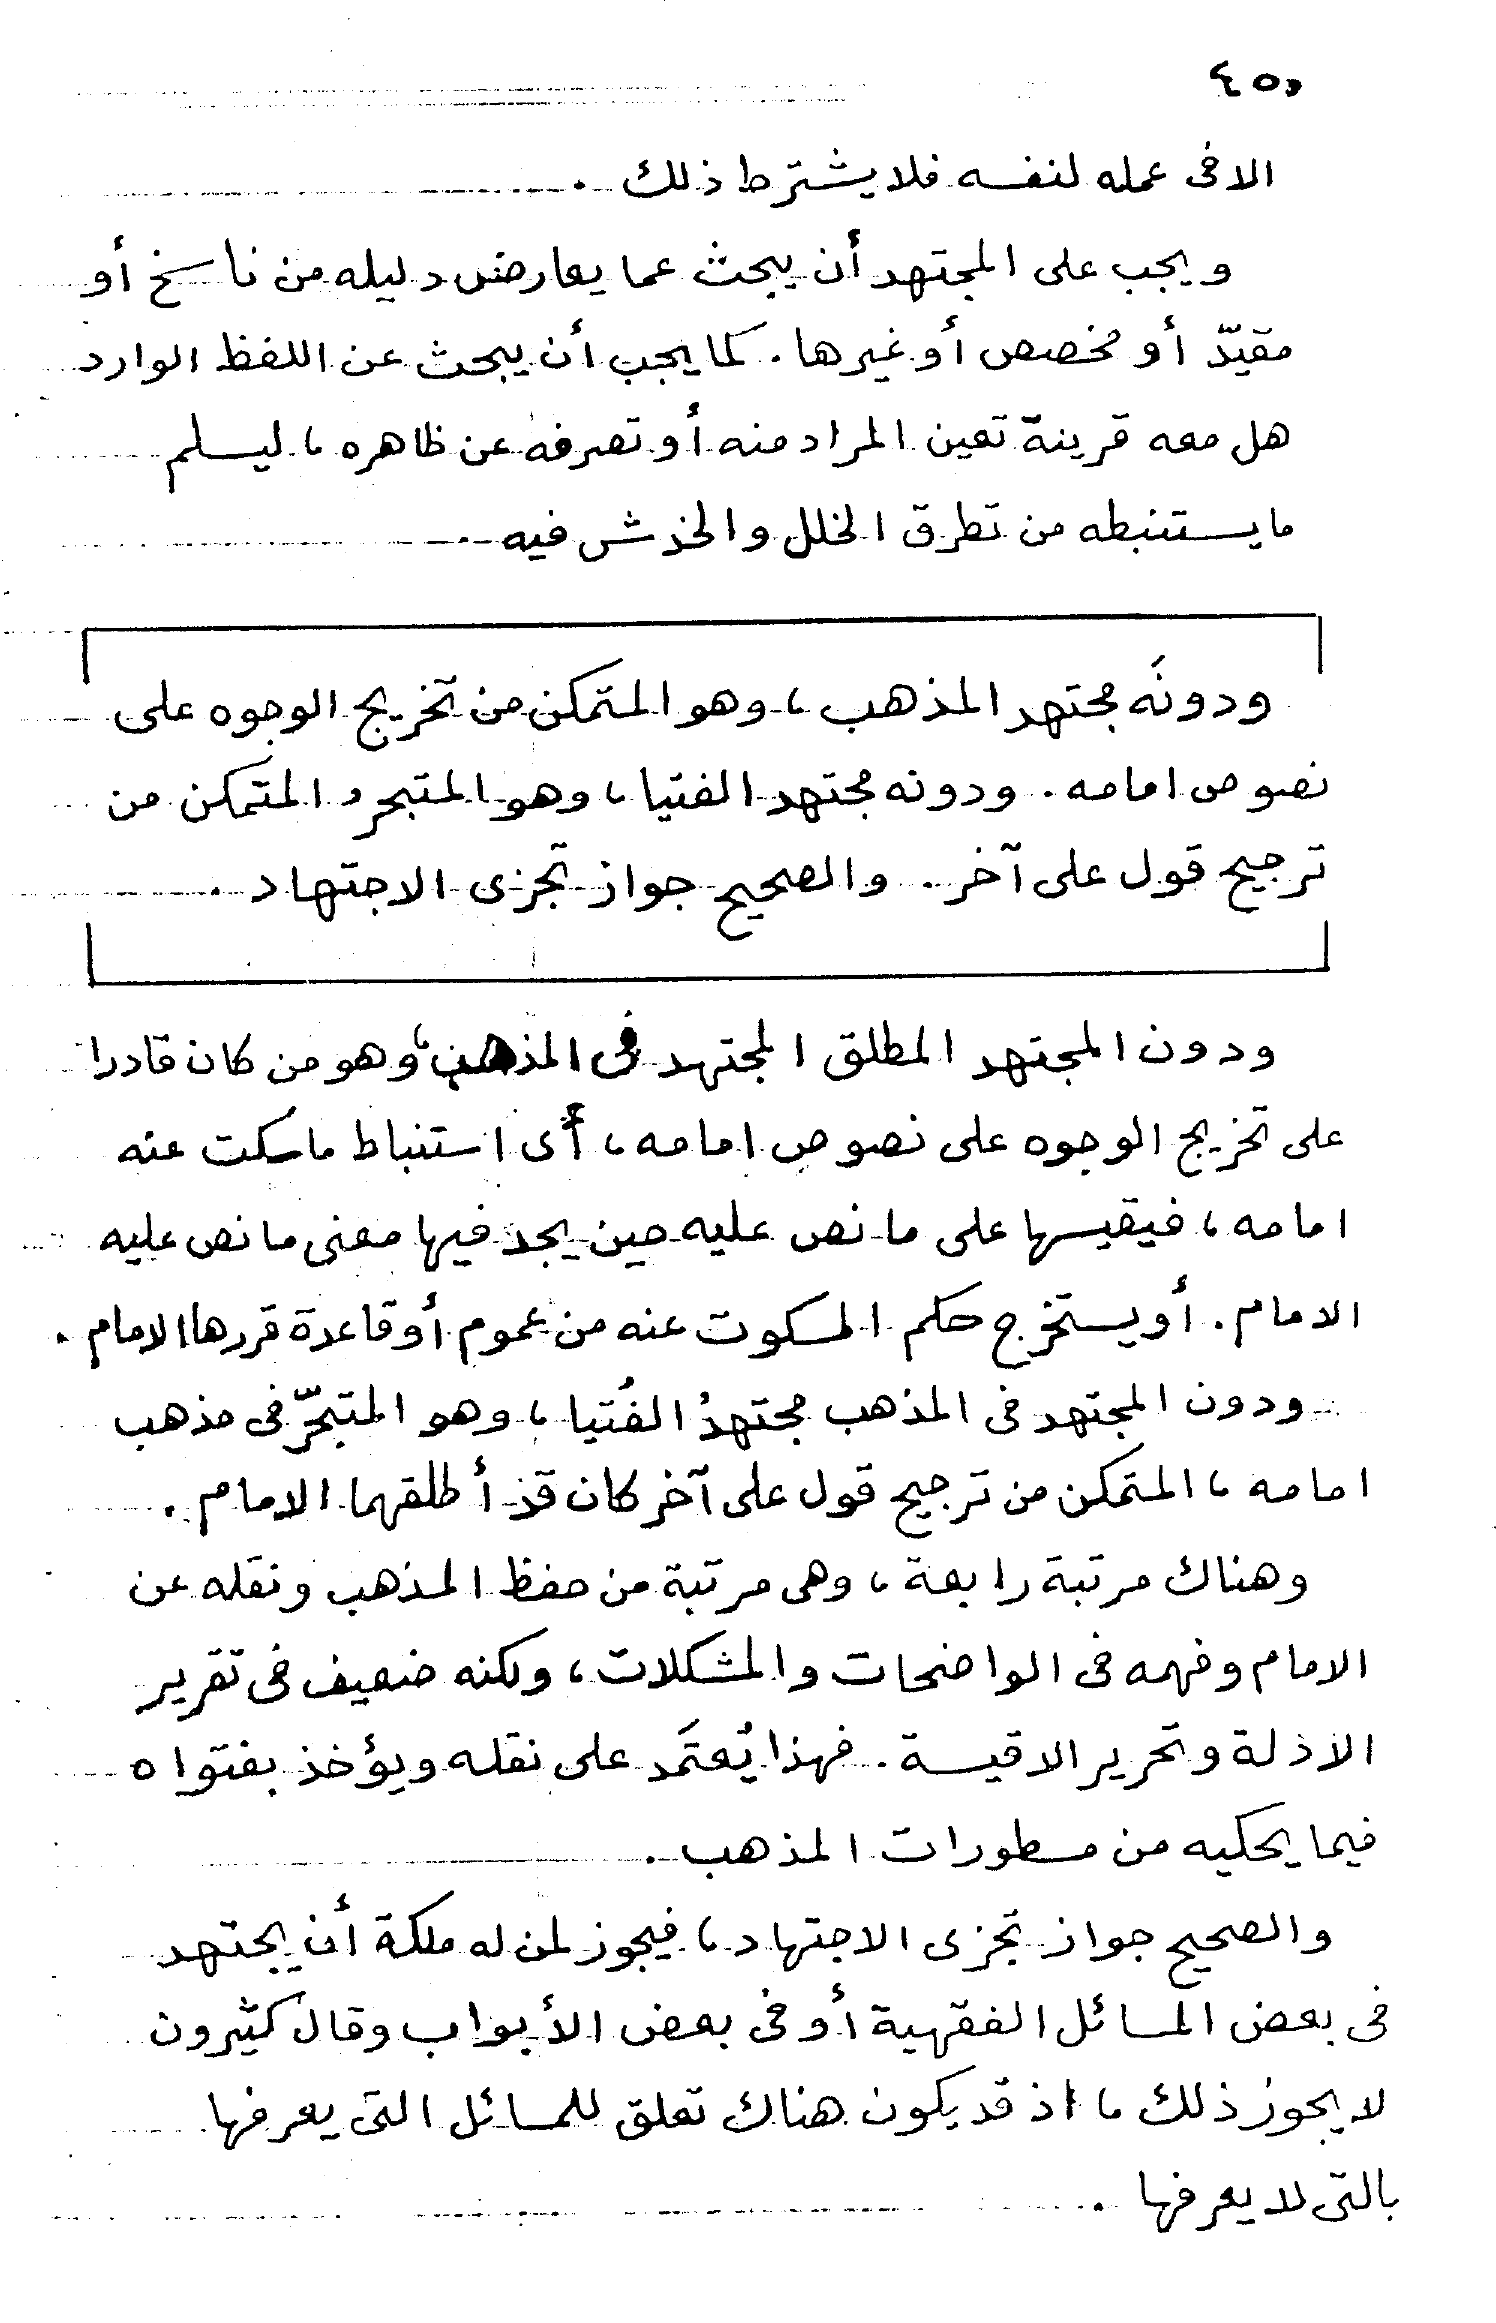 ٤٥٠
الا فى عمله لنفسه فلا يشترط ذلك .
ويجب على المجتهد أن يبحث عما يعارض دليله من ناسخ أو
مقيّد أو مخصص أو غيرها . كما يجب أن يبحث عن اللفظ الوارد
هل معه قرينة تعين المراد منه أو تصرفه عن ظاهره ، ليسلم
ما يستنبطه من تطرق الخلل والخدش فيه .
ودونَه مجتهد المذهب ، وهو المتمكن من تخريج الوجوه على
نصوص امامه . ودونه مجتهد الفتيا ، وهو المتبحر المتمكن من
ترجيح قول على آخر . والصحيح جواز تجزى الاجتهاد .
ودون المجتهد المطلق المجتهد فى المذهب ، وهو من كان قادرا
على تخريج الوجوه على نصوص امامه ، أى استنباط ما سكت عنه
امامه ، فيقيسها على ما نص عليه حين يجد فيها معنى ما نص عليه
الامام . أو يستخرج حكم المسكوت عنه من عموم أو قاعدة قررها الامام .
ودون المجتهد فى المذهب مجتهدُ الفُتيا ، وهو المتبحّر فى مذهب
امامه ، المتمكن من ترجيح قول على آخر كان قد أطلقهما الامام .
وهناك مرتبة رابعة ، وهى مرتبة من حفظ المذهب ونقله عن
الامام وفهمه فى الواضحات والمشكلات ، ولكنه ضعيف فى تقرير
الادلة وتحرير الاقيسة . فهذا يُعتمَد على نقله ويؤخذ بفتواه
فيما يحكيه من مسطورات المذهب .
والصحيح جواز تجزى الاجتهاد ، فيجوز لمن له ملكة أن يجتهد
فى بعض المسائل الفقهية أو فى بعض الأبواب وقال كثيرون
لا يجوز ذلك ، اذ قد يكون هناك تعلق للمسائل التى يعرفها
بالتى لا يعرفها .